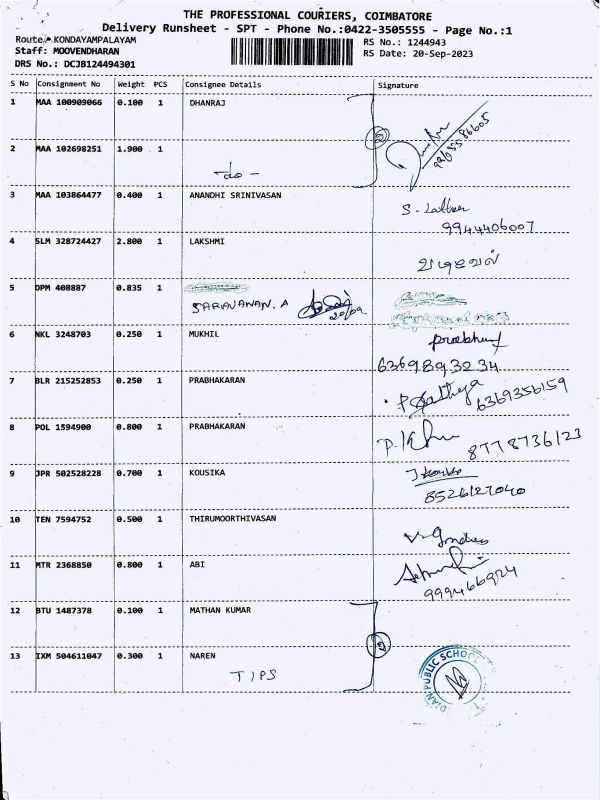 THE PROFESSIONAL COURIERS, COIMBATORE
Delivery Runsheet - SPT - Phone No.:0422-3505555 - Page No.:1
Route: KONDAYAMPALAYAM
RS No.: 1244943
Staff: MOOVENDHARAN
RS Date: 20-Sep-2023
DRS No.: DCJB124494301
S No Consignment No Weight PCS Consignee Details Signature
1 MAA 100909066 0.100 1 DHANRAJ
2 MAA 102698251 1.900 1
-do-
3 MAA 103864477 0.400 1 ANANDHI SRINIVASAN
9944406007
4 SLM 328724427 2.800 1 LAKSHMI
வடிவேல்
5 DPM 408887 0.835 1
SARAVANAN. A
20/09
6 NKL 3248703 0.250 1 MUKHIL
6369893234
7 BLR 215252853 0.250 1 PRABHAKARAN
6369356159
8 POL 1594900 0.800 1 PRABHAKARAN
8778736123
9 JPR 502528228 0.700 1 KOUSIKA
8526127040
10 TEN 7594752 0.500 1 THIRUMOORTHIVASAN
11 MTR 2368850 0.800 1 ABI
12 BTU 1487378 0.100 1 MATHAN KUMAR
2
13 IXM 504611047 0.300 1 NAREN
TIPS
DIAN PUBLIC SCHOO